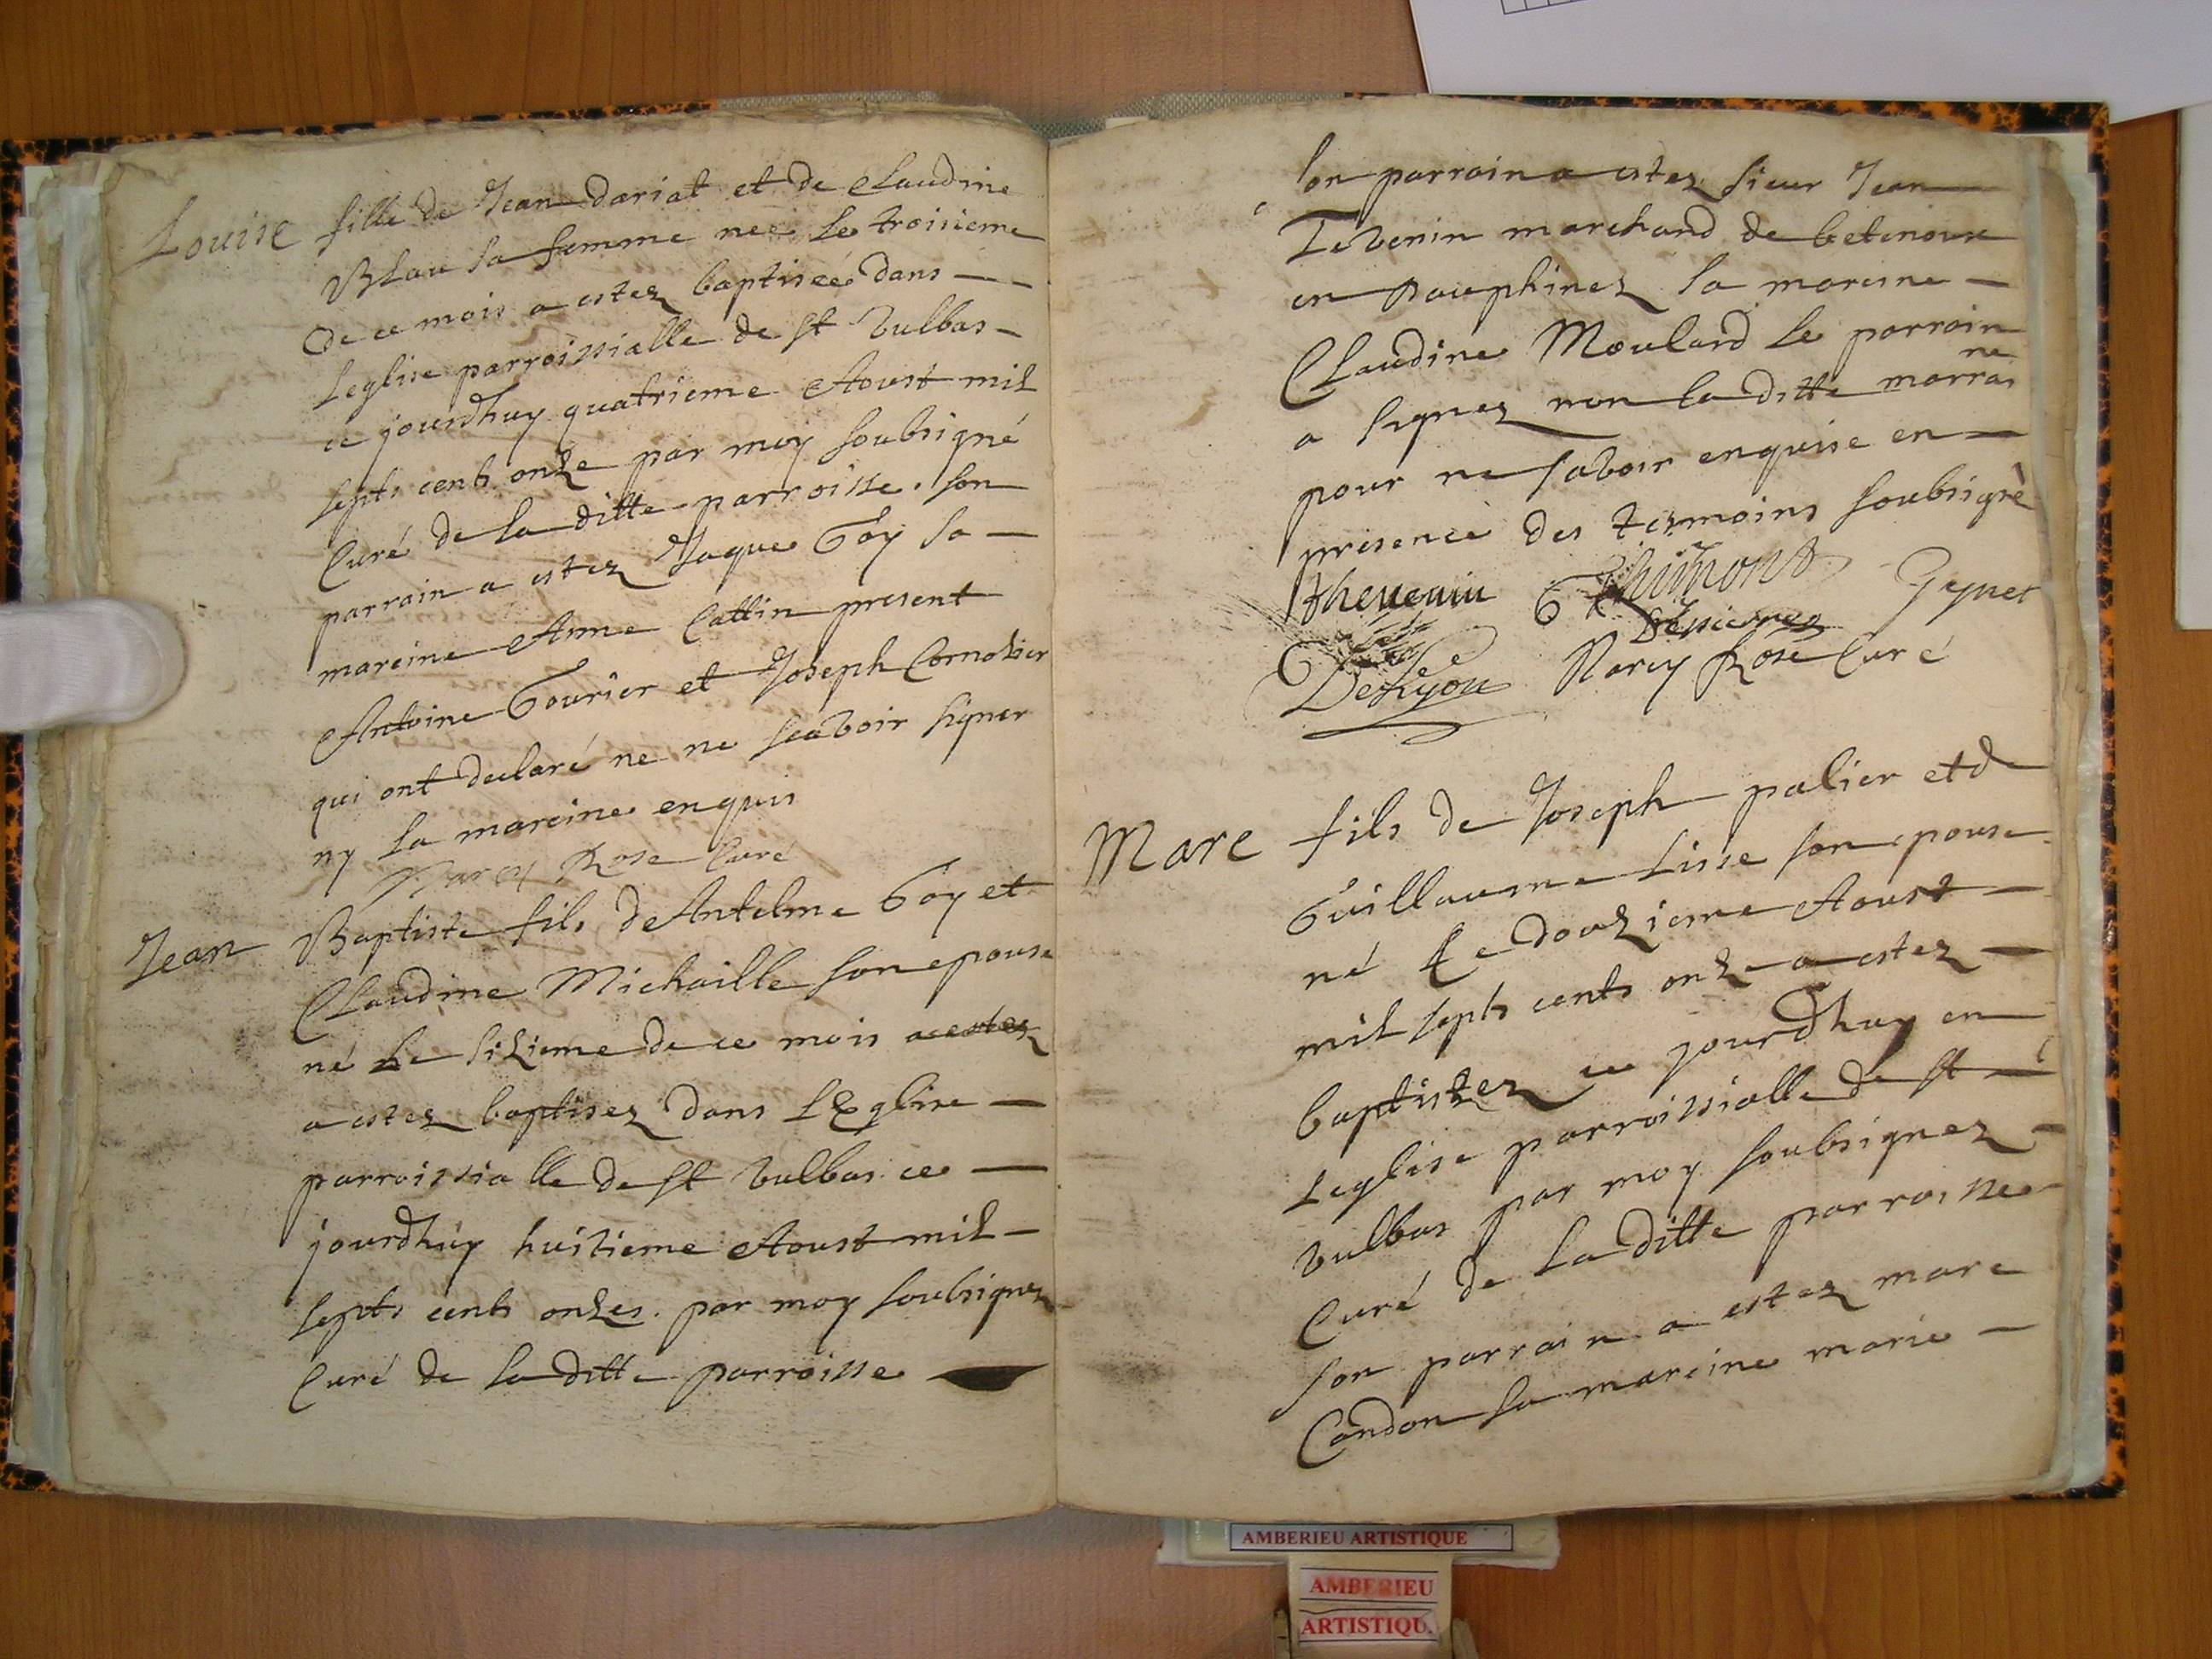 Louise fille de Jean dariat et de Claudine
Blau sa femme neé le troisieme
de ce mois a estez baptiseé dans
Leglise parroissialle de st Vulbas
ce jourdhuy quatrieme Aoust mil
septs cents onze par moy soubsigné
Curé de la ditte parroisse. son
parrain a estez Jaque Goy sa
mareine Anne Cattin present
Antoine Gourier et Joseph Cornolier
qui ont declaré ne ne scavoir signer
ny la mareine enquis
Narcy Rose Curé
Jean Baptiste fils de Antelme Goy et
Claudine Michaille son epouse
né Le sizieme de ce mois
a estez baptisez dans LEglise
parroissialle de st Vulbas ce
jourdhuy huitieme Aoust mil
septs cents onzes. par moy soubsignez
Curé de la ditte parroisse
son parrain a estez sieur Jean
Tevenin marchand de betenoux
en Dauphinez sa mareine
Claudine Moulard le parrain
a signez non la ditte marraine
pour ne savoir enquise en
presence des tesmoins soubsigné
Thevenin Gynet
Narcy Rose Curé
Marc fils de Joseph palier et de
Guillaume Lisse son epouse
né Le douzieme Aoust
mil septs cents onze a estez
baptistez ce jourdhuy en
Leglise parroissialle de st
Vulbas par moy soubsignez
Curé de La ditte parroisse
son parrain a estez marc
Candon sa mareine marie
AMBERIEU ARTISTIQUE
AMBERIEU
ARTISTIQU